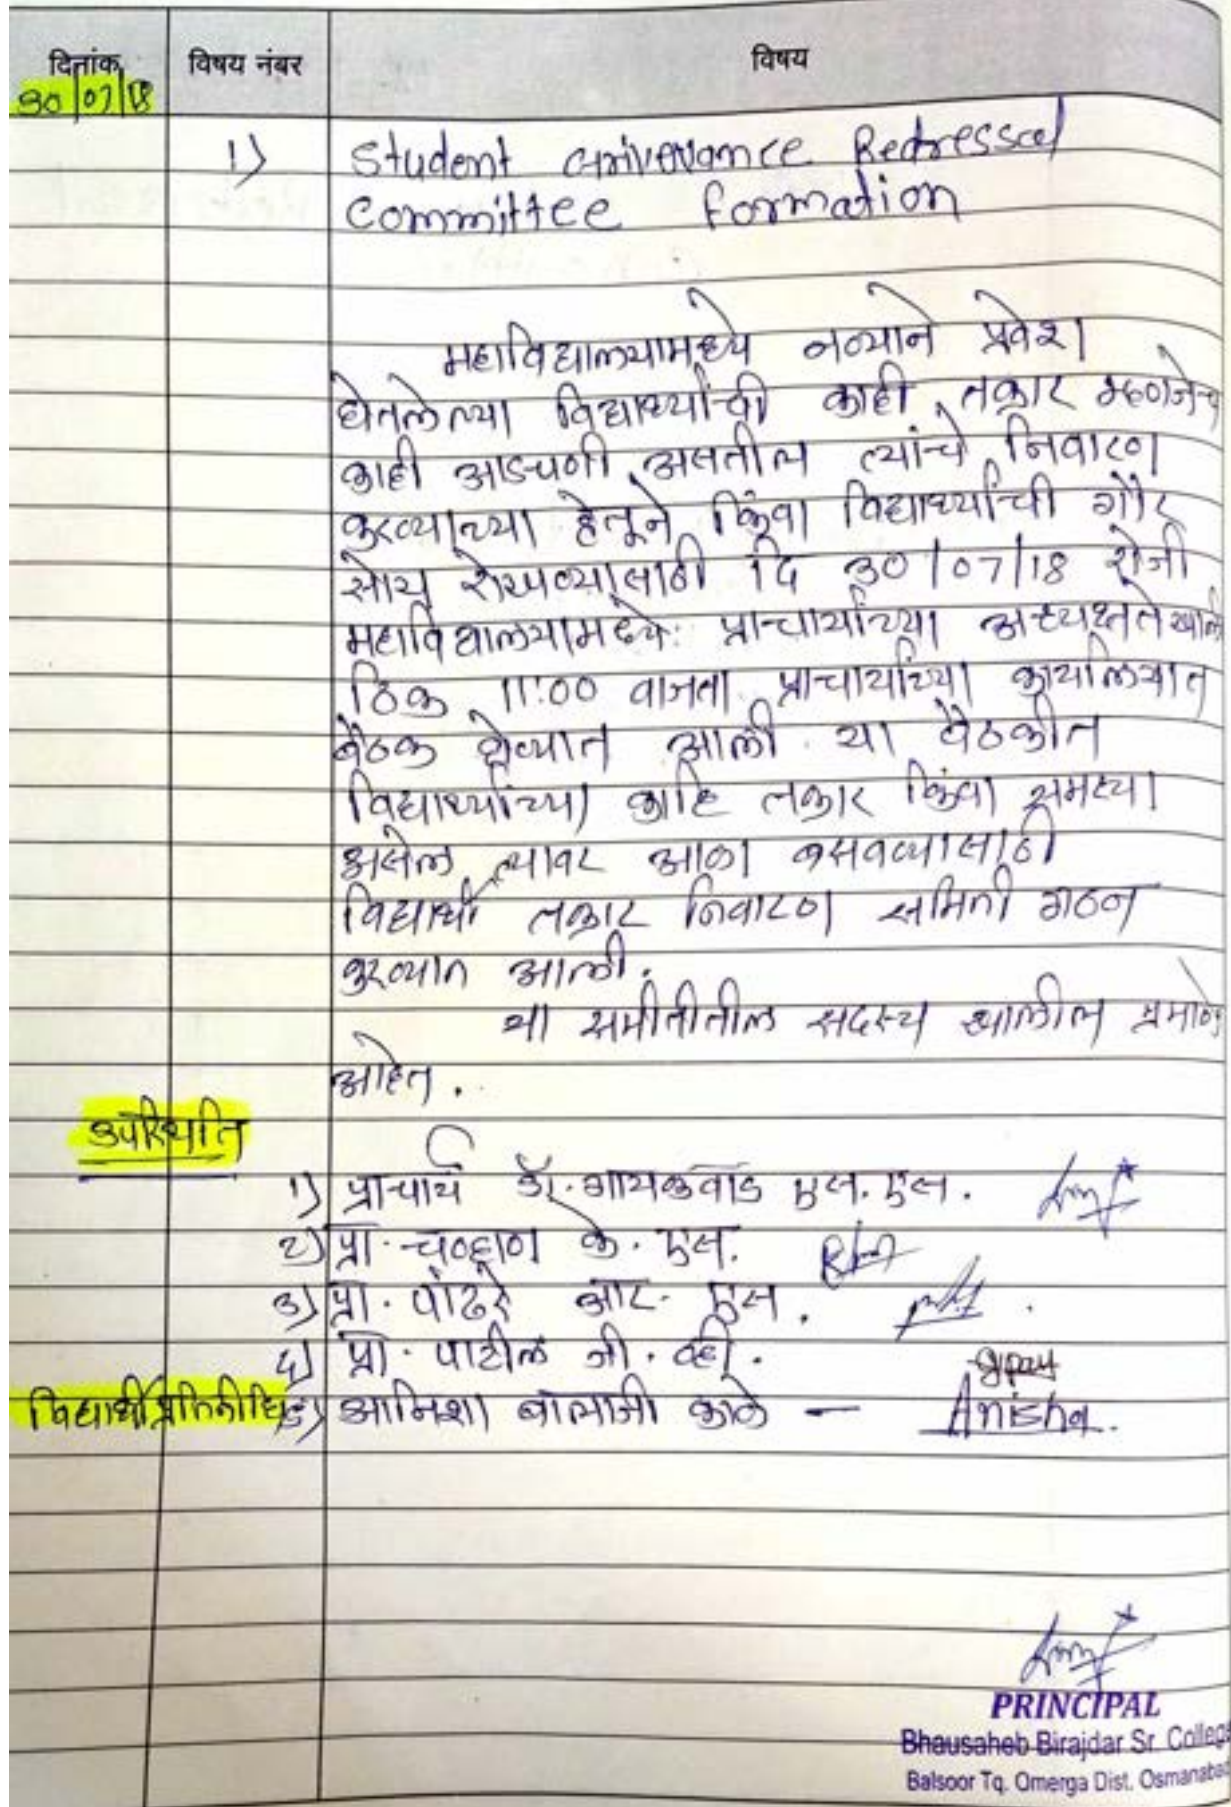 दिनांक विषय नंबर विषय
30/07/18
1) Student Grivevance Redressal
Committee Formation
महाविद्यालयामध्ये नव्याने प्रवेश
घेतलेल्या विद्यार्थ्यांची काही तक्रार म्हणजेच
काही अडचणी असतील त्यांचे निवारण
करण्याच्या हेतूने किंवा विद्यार्थ्यांची गैर
सोय रोखण्यासाठी दि 30/07/18 रोजी
महाविद्यालयामध्ये प्राचार्यांच्या अध्यक्षतेखाली
ठिक 11:00 वाजता प्राचार्यांच्या कार्यालयात
बैठक घेण्यात आली. या बैठकीत
विद्यार्थ्यांच्या काहि तक्रार किंवा समस्या
असेल त्यावर आळा बसवण्यासाठी
विद्यार्थी तक्रार निवारण समिती गठन
करण्यात आली.
या समीतीतील सदस्य खालील प्रमाणे
आहेत.
उपस्थिति
1) प्राचार्य डॉ. गायकवाड एस. एस.
2) प्रा. चव्हाण के. एस.
3) प्रा. पांढरे आर. एस.
4) प्रा. पाटील जी. व्ही.
विद्यार्थी प्रतिनिधि 5) आनिशा बालाजी काळे — Anisha.
PRINCIPAL
Bhausaheb Birajdar Sr. College
Balsoor Tq. Omerga Dist. Osmanabad